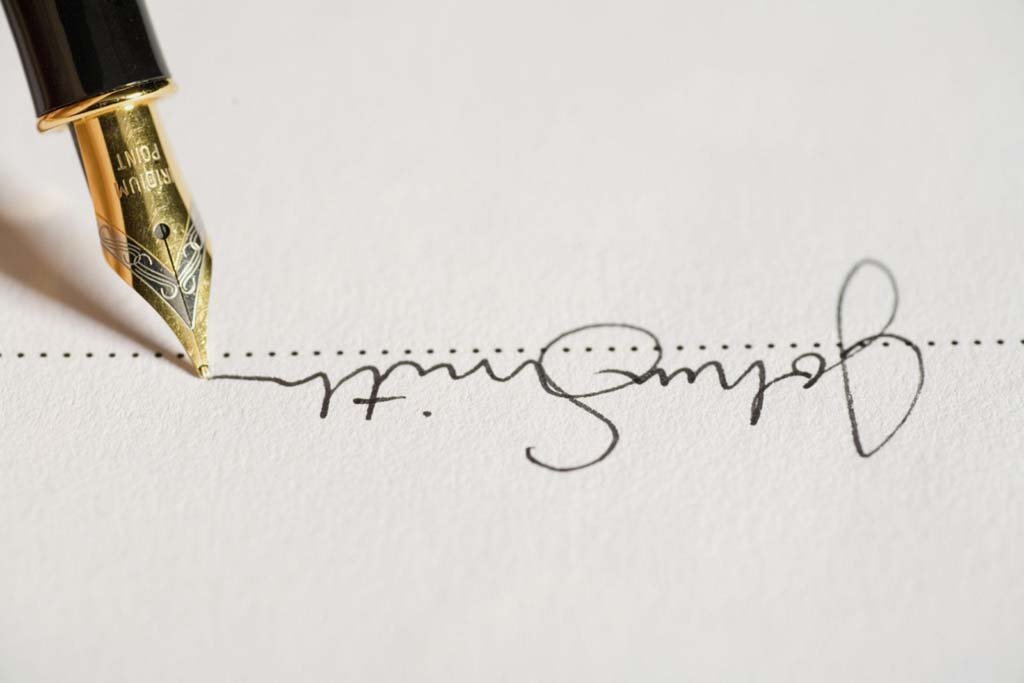 IRIDIUM
POINT
John Smith